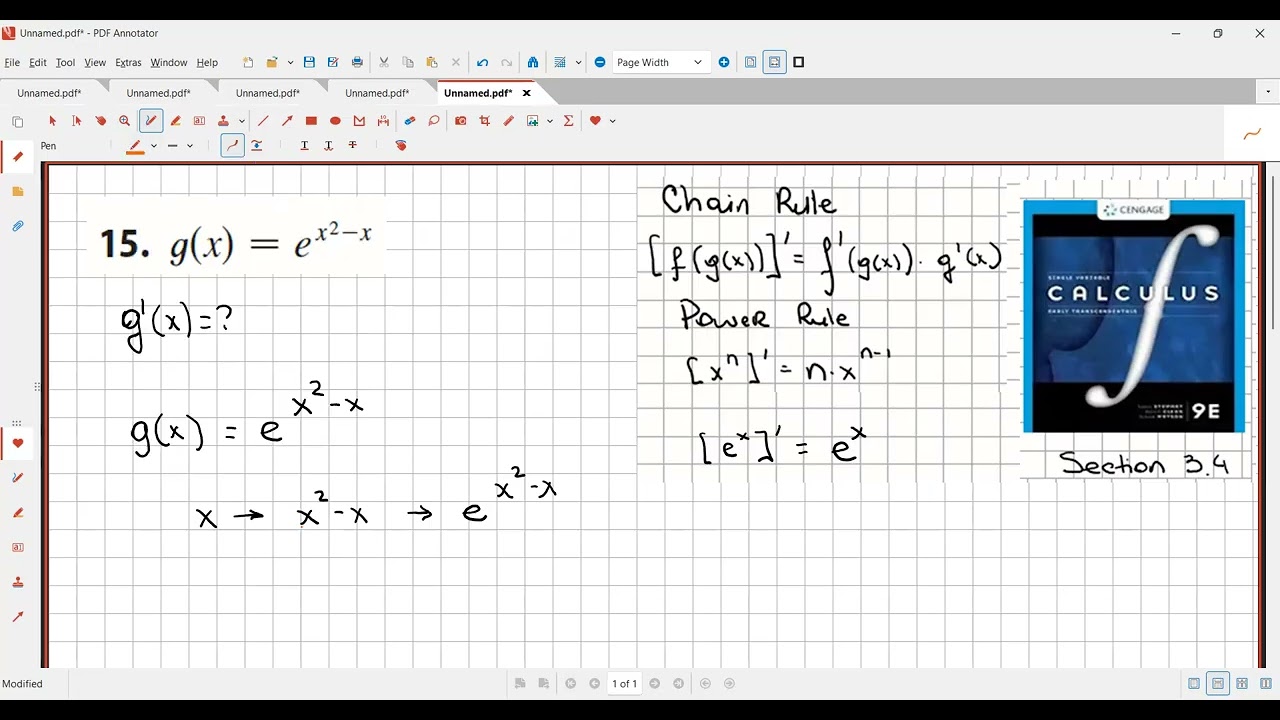 Unnamed.pdf* - PDF Annotator
File Edit Tool View Extras Window Help
Page Width
Unnamed.pdf* Unnamed.pdf* Unnamed.pdf* Unnamed.pdf* Unnamed.pdf*
Pen
15. g(x) = e^{x²-x}
g'(x) = ?
g(x) = e^{x²-x}
x → x²-x → e^{x²-x}
Chain Rule
[f(g(x))]' = f'(g(x)) · g'(x)
Power Rule
[xⁿ]' = n·x^{n-1}
[eˣ]' = eˣ
CENGAGE
SINGLE VARIABLE
CALCULUS
EARLY TRANSCENDENTALS
9E
Section 3.4
Modified
1 of 1